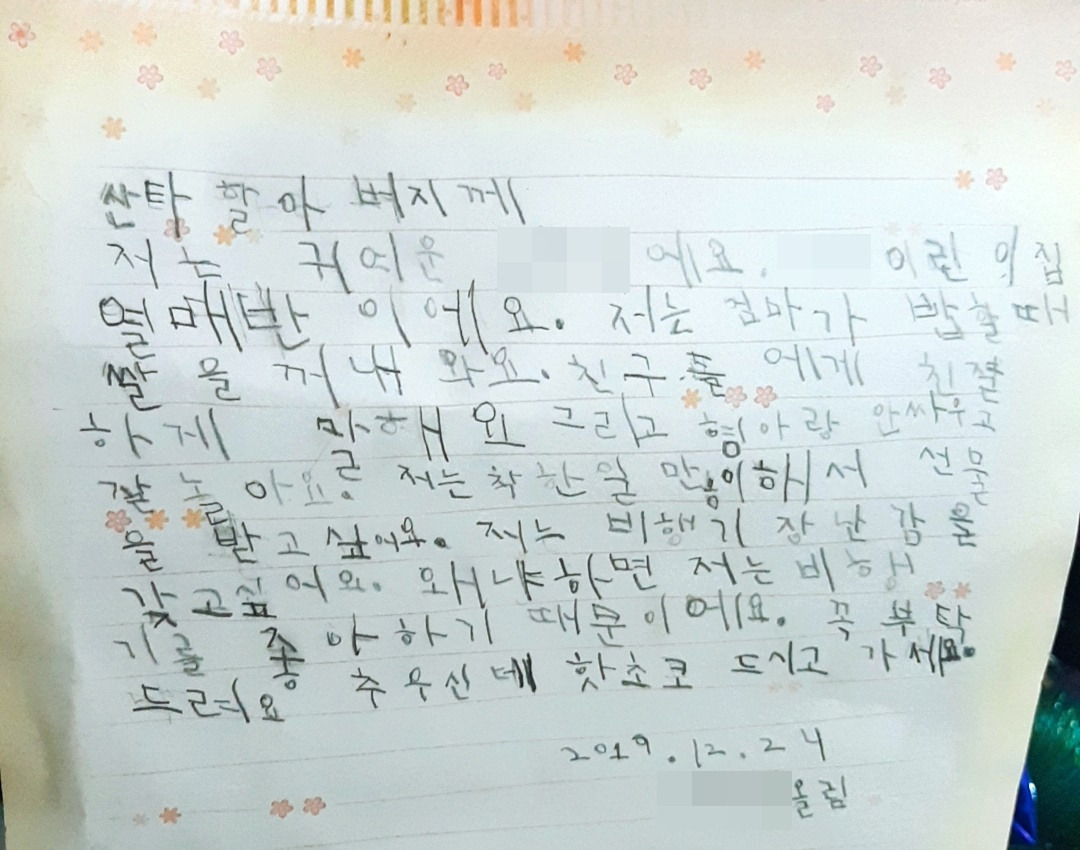 산타 할아버지께
저는 귀여운 에요. 어린의집
열매반이에요. 저는 엄마가 밥할때
쭐을 꺼내와요. 친구들에게 친절
하게 말해요 그리고 형아랑 안싸우고
잘 놀아요. 저는 착한일 많이해서 선물
을 받고 싶어요. 저는 비행기 장난감을
갖고싶어요. 왜냐하면 저는 비행
기를 좋아하기 때문이에요. 꼭 부탁
드려요 추우신데 핫초코 드시고 가세요.
2019.12.24
올림